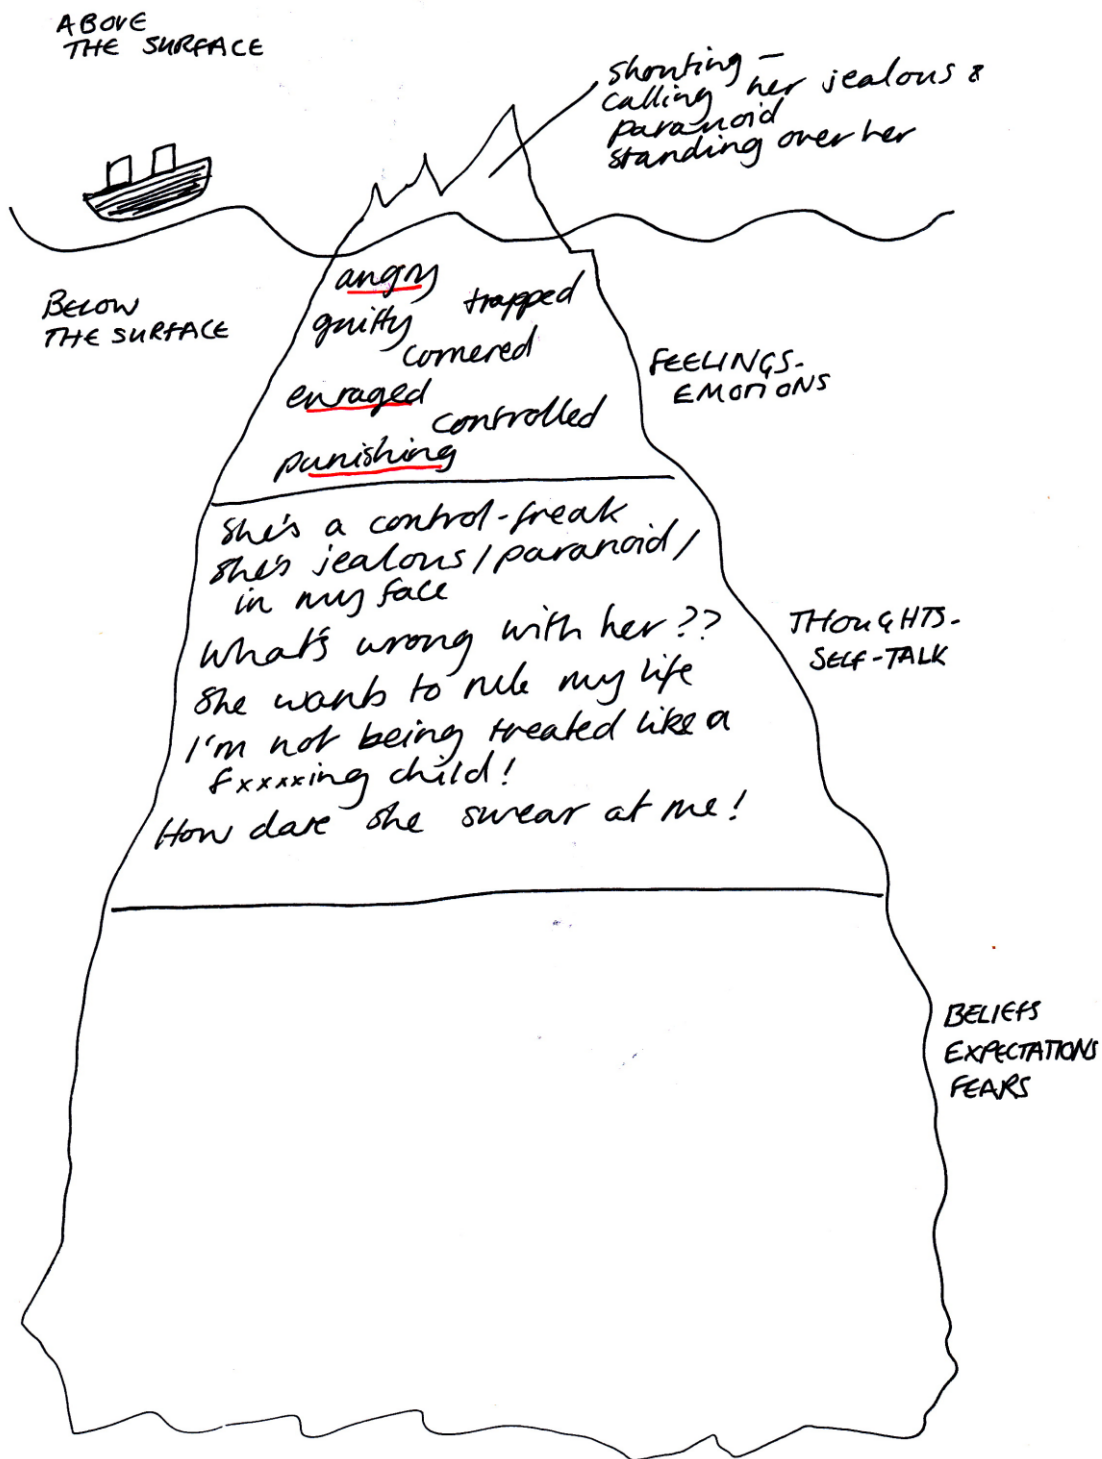 ABOVE
THE SURFACE
shouting –
calling her jealous &
paranoid
standing over her
BELOW
THE SURFACE
angry
trapped
guilty
cornered
enraged
controlled
punishing
FEELINGS-
EMOTIONS
She's a control-freak
She's jealous/paranoid/
in my face
What's wrong with her??
She wants to rule my life
I'm not being treated like a
fxxxxing child!
How dare she swear at me!
THOUGHTS-
SELF-TALK
BELIEFS
EXPECTATIONS
FEARS